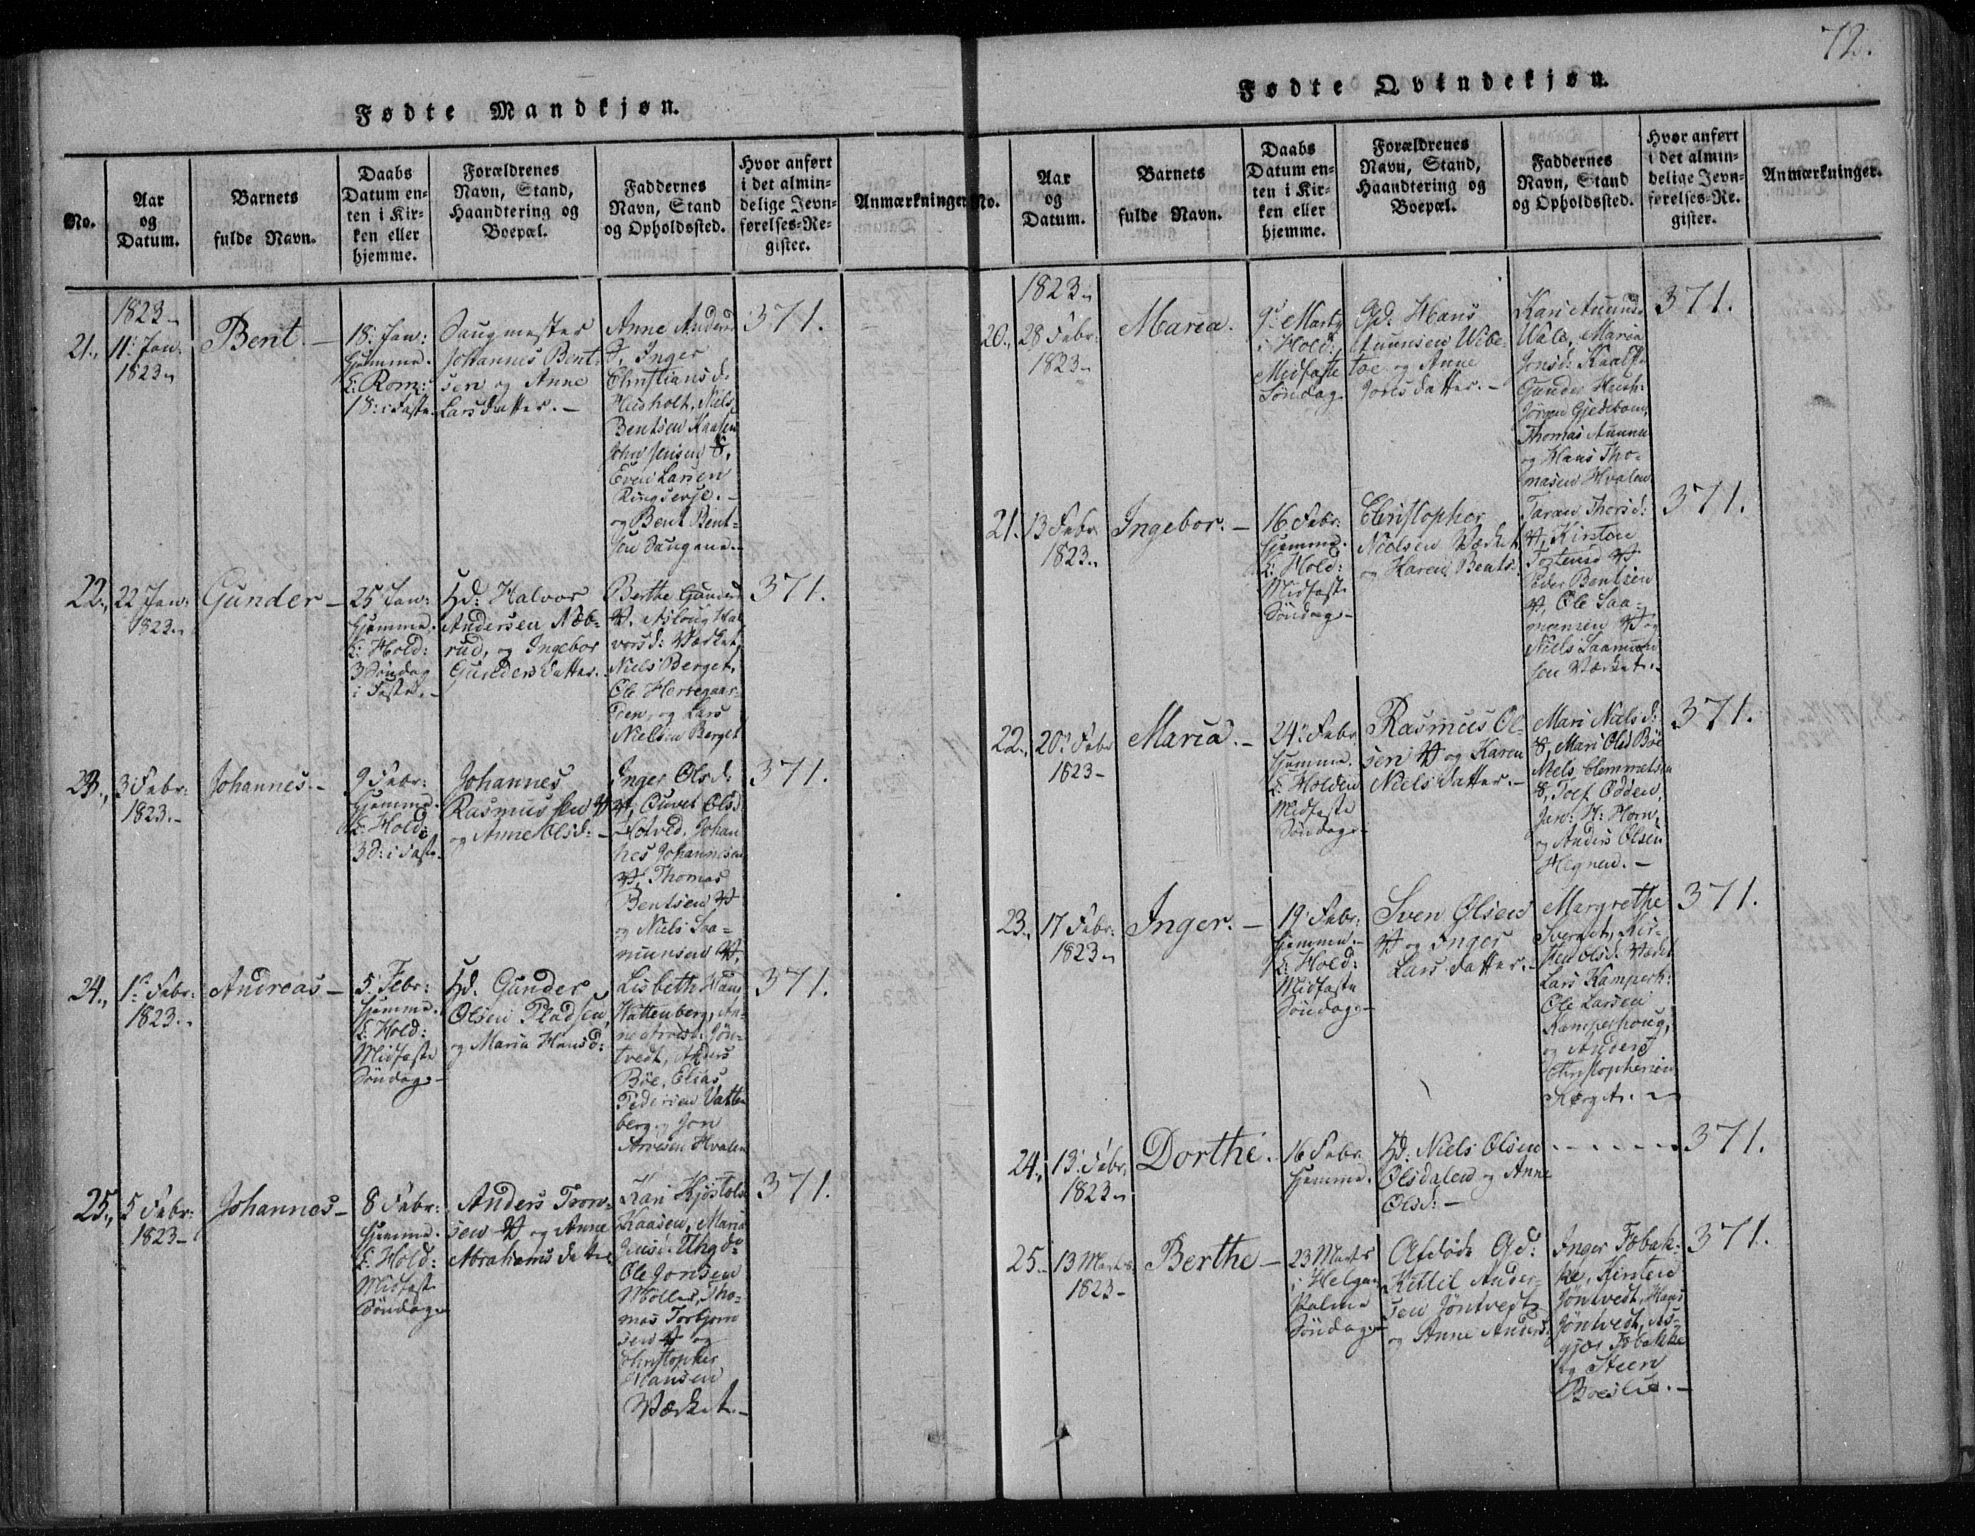 72.
Fødte Mandkjøn.
No.
Aar
og
Datum.
Barnets
fulde Navn.
Daabs
Datum en-
ten i Kir-
ken eller
hjemme.
Forældrenes
Navn, Stand,
Haandtering og
Boepæl.
Faddernes
Navn, Stand
og Opholdssted.
Hvor anført
i det almin-
delige Jevn-
førelses-Re-
gister.
Anmærkninger.
21.
1823
11 Jan:
1823
Bent.
18: Jan:
hjemme.
Rom:
18: i Faste.
Saugmester
Johannes Bent-
sen og Anne
Larsdatter.
Anne Anders
Inger
Christiansd:
Huusholt, Niels
Bentsen Kaasen
John Jensen
Even Larsen
og Bent Bent-
sen Saugene.
371.
22.
22 Jan:
1823
Gunder
25 Jan:
hjemme.
Hold:
3 Søndag
i Faste.
Hd: Halvor
Andersen Næb-
rud, og Ingebor
Gundersdatter.
Berthe Gunders
Asloug Hal
vorsd: Værket,
Niels Berget,
Ole Herregaar-
den, og Lars
Nielsen Berget
371.
23.
3 Febr:
1823.
Johannes.
9 Febr:
hjemme.
Hold:
3 S: i Faste.
Johannes
Rasmussen
og Anne Olsd:
Inger Olsd:
Olsd
Holved, Johan
nes Johannesen
Thomas
Bentsen
og Niels Saa-
munsen
371.
24.
1 Febr:
1823.
Andreas
5 Febr:
hjemme.
Hold:
Midfaste
Søndag.
Hd: Gunder
Olsen Pladsen,
og Maria Hansd:
Lisbeth Hans
Vattenberg, An-
ne Arvesd: Jøn-
tvedt, Anders
Bøe, Elias
Pedersen Vatten
berg, Jon
Arvesen Hvalen
371.
25.
5 Febr:
1823
Johannes
8 Febr:
hjemme.
Hold:
Midfaste
Søndag
Anders Tron-
sen og Anne
Abrahamsdatter
Kari Kjøstols
Kaasen, Maria
Jensd:
Ole Jonsen
Møller, Tho-
mas Torbjørn
sen og
Christopher
Hansen
Værket.
371.
Fødte Qvindekjøn.
No.
Aar
og
Datum.
Barnets
fulde Navn.
Daabs
Datum en-
ten i Kir-
ken eller
hjemme.
Forældrenes
Navn, Stand,
Haandtering og
Boepæl.
Faddernes
Navn, Stand
og Opholdssted.
Hvor anført
i det almin-
delige Jevn-
førelses-Re-
gister.
Anmærkninger.
20.
1823
28 Febr:
1823
Maria.
9 Marty
i Hold:
Midfaste
Søndag
Gd: Hans
Aunnsen Wibe-
toe og Anne
Jonsdatter.
Kari Aunnsd
Wale, Maria
Jonsd:
Gunder
Jørgen Gjedeboun,
Thomas Aunns
og Hans Tho-
masen Hvalen
371.
21.
13 Febr.
1823
Ingebor.
16 Febr.
hjemme.
Hold:
Midfaste
Søndag
Christopher
Nielsen Værket
og Karen Bents.
Taran Thorsd:
Kirsten
Torstensd
Peder Bentsen
Ole Saa-
mensen og
Niels Saamun
sen Værket.
371.
22.
20 Febr
1823
Maria.
24 Febr
hjemme.
Holden
Midfaste
Søndag
Rasmus Ol-
sen og Karen
Nielsdatter.
Mari Nielsd:
Mari Olsd Bøe
Niels Clemmetsen
Joef Odden,
Jan: H: Horn,
og Anders Olsen
Hegnen.
371.
23.
17 Febr:
1823
Inger.
19 Febr:
hjemme.
Hold:
Midfaste
Søndag
Sven Olsen
og Inger
Larsdatter.
Margrethe
Kir-
sten Olsd: Værket
Lars Kamperh:
Ole Larsen
Kamperhoug,
og Anders
Christophersen
371.
24.
13 Febr.
1823
Dorthe.
16 Febr.
hjemme.
Hd: Niels Olsen
Olsdalen og Anne
Olsd:
371.
25.
13 Marts
1823
Berthe
23 Marts
i Helgen
Palme
Søndag
Afdøde Gd:
Kittil Ander-
sen Jøntvedt
og Anne Anders:
Inger Tobak-
ke, Kirsten
Jøntvedt, Hans
Jøntvedt, As-
gjer Tobakke
og Steen
371.